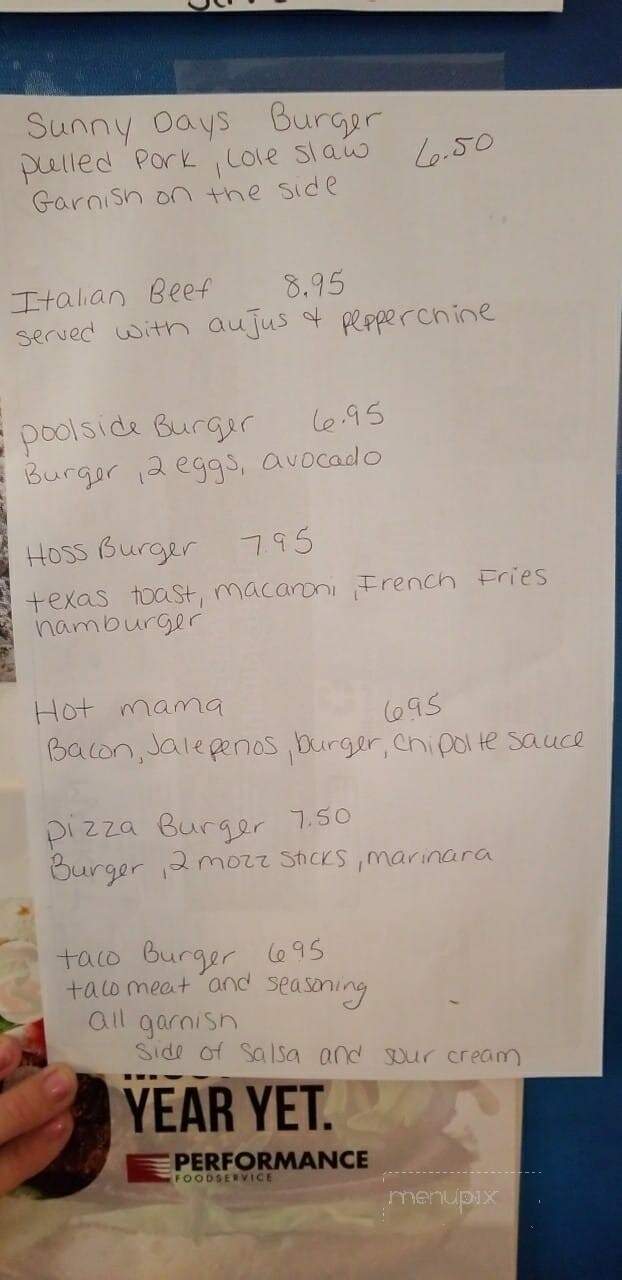 Sunny Days Burger
pulled Pork, Cole Slaw 6.50
Garnish on the side
Italian Beef 8.95
served with aujus & pepperchine
poolside Burger 6.95
Burger, 2 eggs, avocado
Hoss Burger 7.95
texas toast, macaroni, French Fries
hamburger
Hot mama 6.95
Bacon, Jalepenos, burger, chipolte sauce
pizza Burger 7.50
Burger, 2 mozz sticks, marinara
taco Burger 6.95
taco meat and seasoning
all garnish
Side of Salsa and sour cream
YEAR YET.
PERFORMANCE
FOODSERVICE
menupix